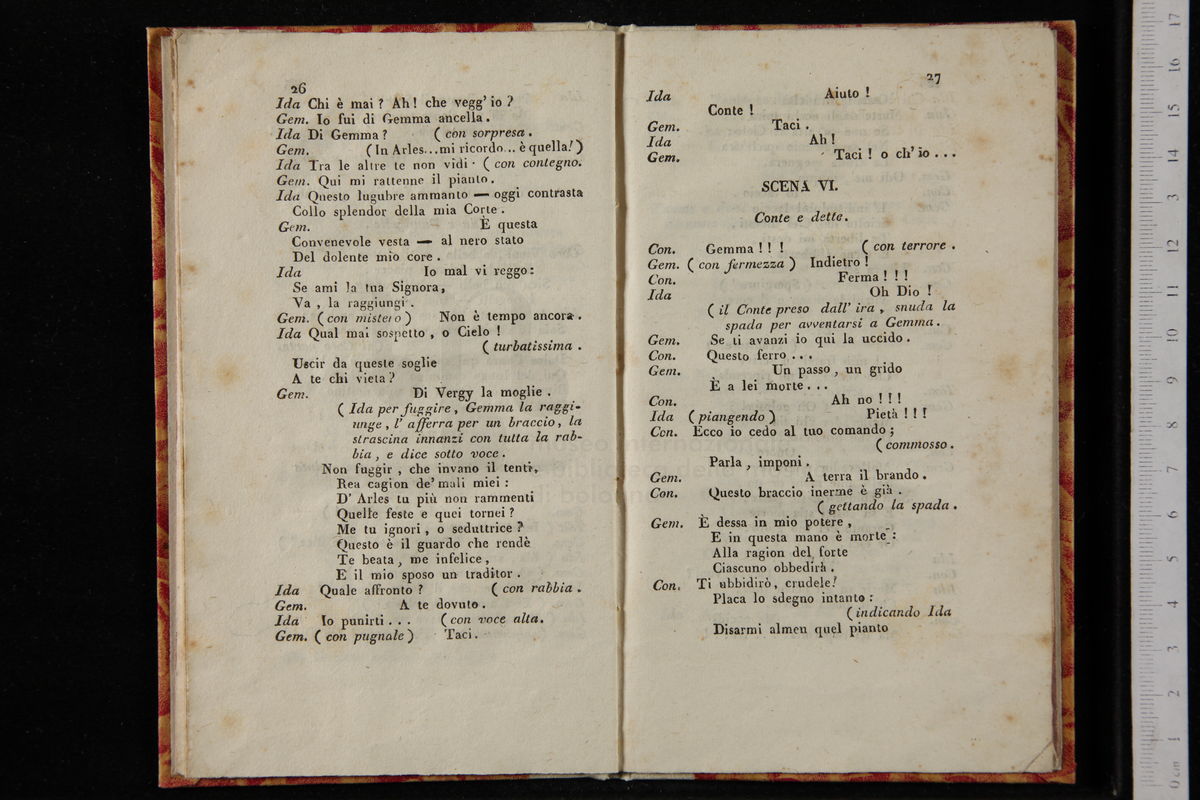 26
Ida Chi è mai ? Ah! che vegg' io ?
Gem. Io fui di Gemma ancella .
Ida Di Gemma ? ( con sorpresa .
Gem. ( In Arles...mi ricordo... è quella! )
Ida Tra le altre te non vidi · ( con contegno.
Gem. Qui mi rattenne il pianto .
Ida Questo lugubre ammanto — oggi contrasta
Collo splendor della mia Corte .
Gem. È questa
Convenevole vesta — al nero stato
Del dolente mio core .
Ida Io mal vi reggo :
Se ami la tua Signora,
Va , la raggiungi .
Gem. ( con mistero ) Non è tempo ancora .
Ida Qual mai sospetto , o Cielo !
( turbatissima .
Uscir da queste soglie
A te chi vieta ?
Gem. Di Vergy la moglie .
( Ida per fuggire , Gemma la raggi-
unge , l' afferra per un braccio, la
strascina innanzi con tutta la rab-
bia , e dice sotto voce .
Non fuggir , che invano il tenti,
Rea cagion de' mali miei :
D' Arles tu più non rammenti
Quelle feste e quei tornei ?
Me tu ignori , o seduttrice ?
Questo è il guardo che rendè
Te beata , me infelice ,
E il mio sposo un traditor .
Ida Quale affronto ? ( con rabbia .
Gem. A te dovuto .
Ida Io punirti . . . ( con voce alta.
Gem. ( con pugnale ) Taci .
27
Ida Aiuto !
Conte !
Gem. Taci .
Ida Ah !
Gem. Taci ! o ch' io . . .
SCENA VI.
Conte e dette .
Con. Gemma ! ! ! ( con terrore .
Gem. ( con fermezza ) Indietro !
Con. Ferma ! ! !
Ida Oh Dio !
( il Conte preso dall' ira , snuda la
spada per avventarsi a Gemma .
Gem. Se ti avanzi io qui la uccido .
Con. Questo ferro . . .
Gem. Un passo , un grido
È a lei morte . . .
Con. Ah no ! ! !
Ida ( piangendo ) Pietà ! ! !
Con. Ecco io cedo al tuo comando ;
( commosso .
Parla , imponi .
Gem. A terra il brando .
Con. Questo braccio inerme è già .
( gettando la spada .
Gem. È dessa in mio potere ,
E in questa mano è morte :
Alla ragion del forte
Ciascuno obbedirà .
Con. Ti ubbidirò, crudele!
Placa lo sdegno intanto :
( indicando Ida
Disarmi almen quel pianto